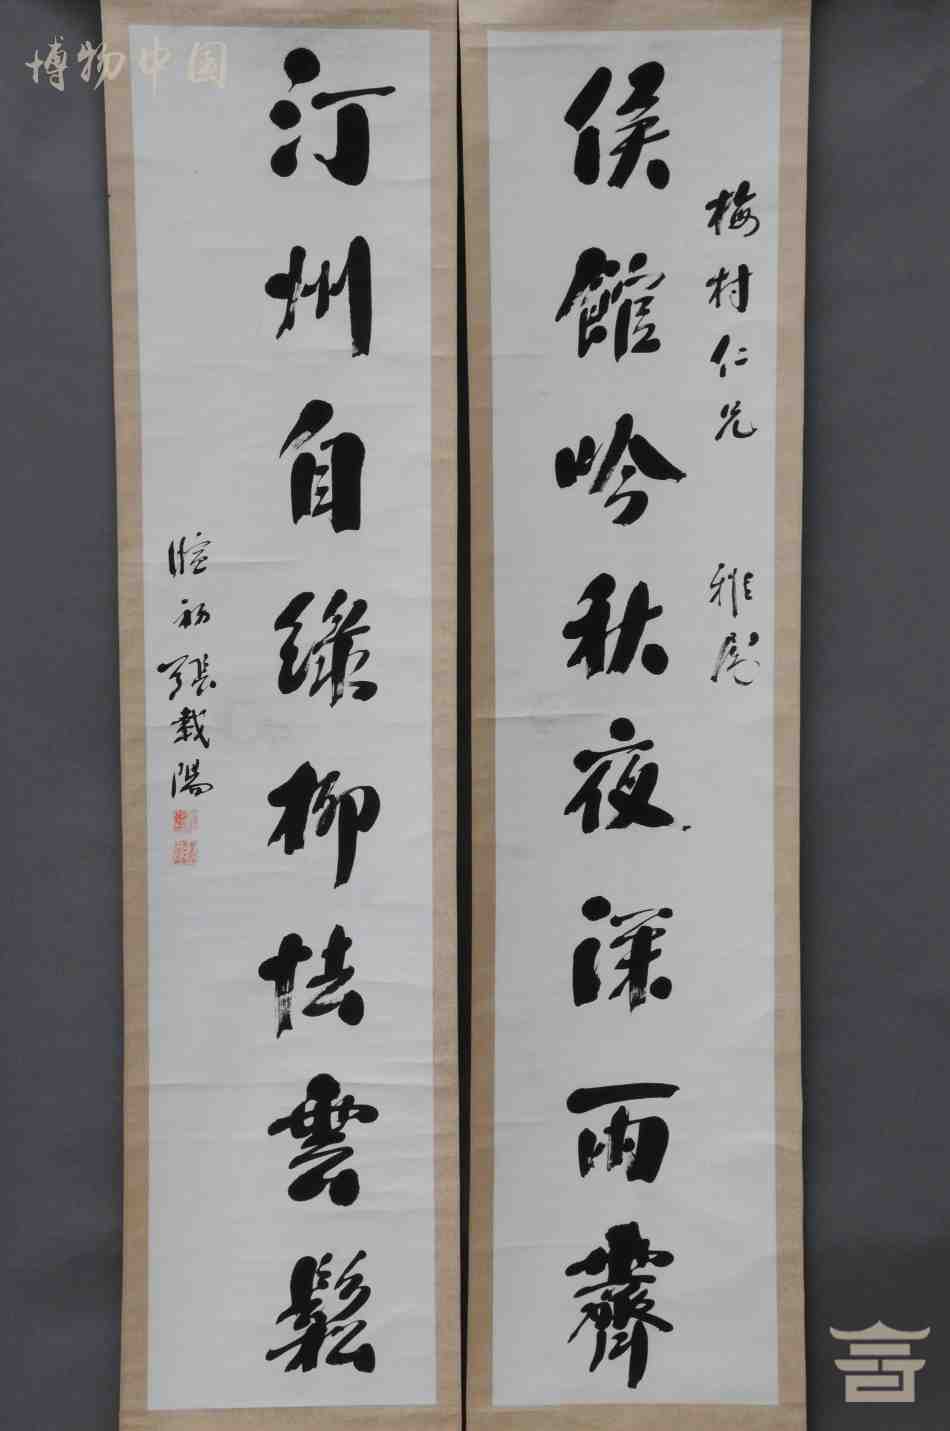 博物中国
梅村仁兄 雅属
侯館吟秋夜深雨霽
汀州自綠柳怯雲鬆
暄初張載陽